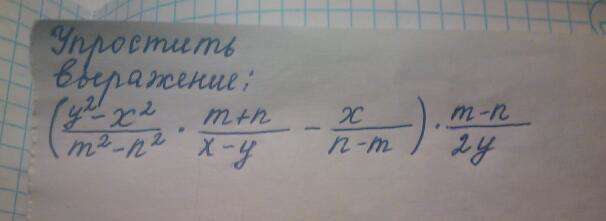 Упростить
выражение:
(y²-x²/m²-n² · m+n/x-y - x/n-m) · m-n/2y